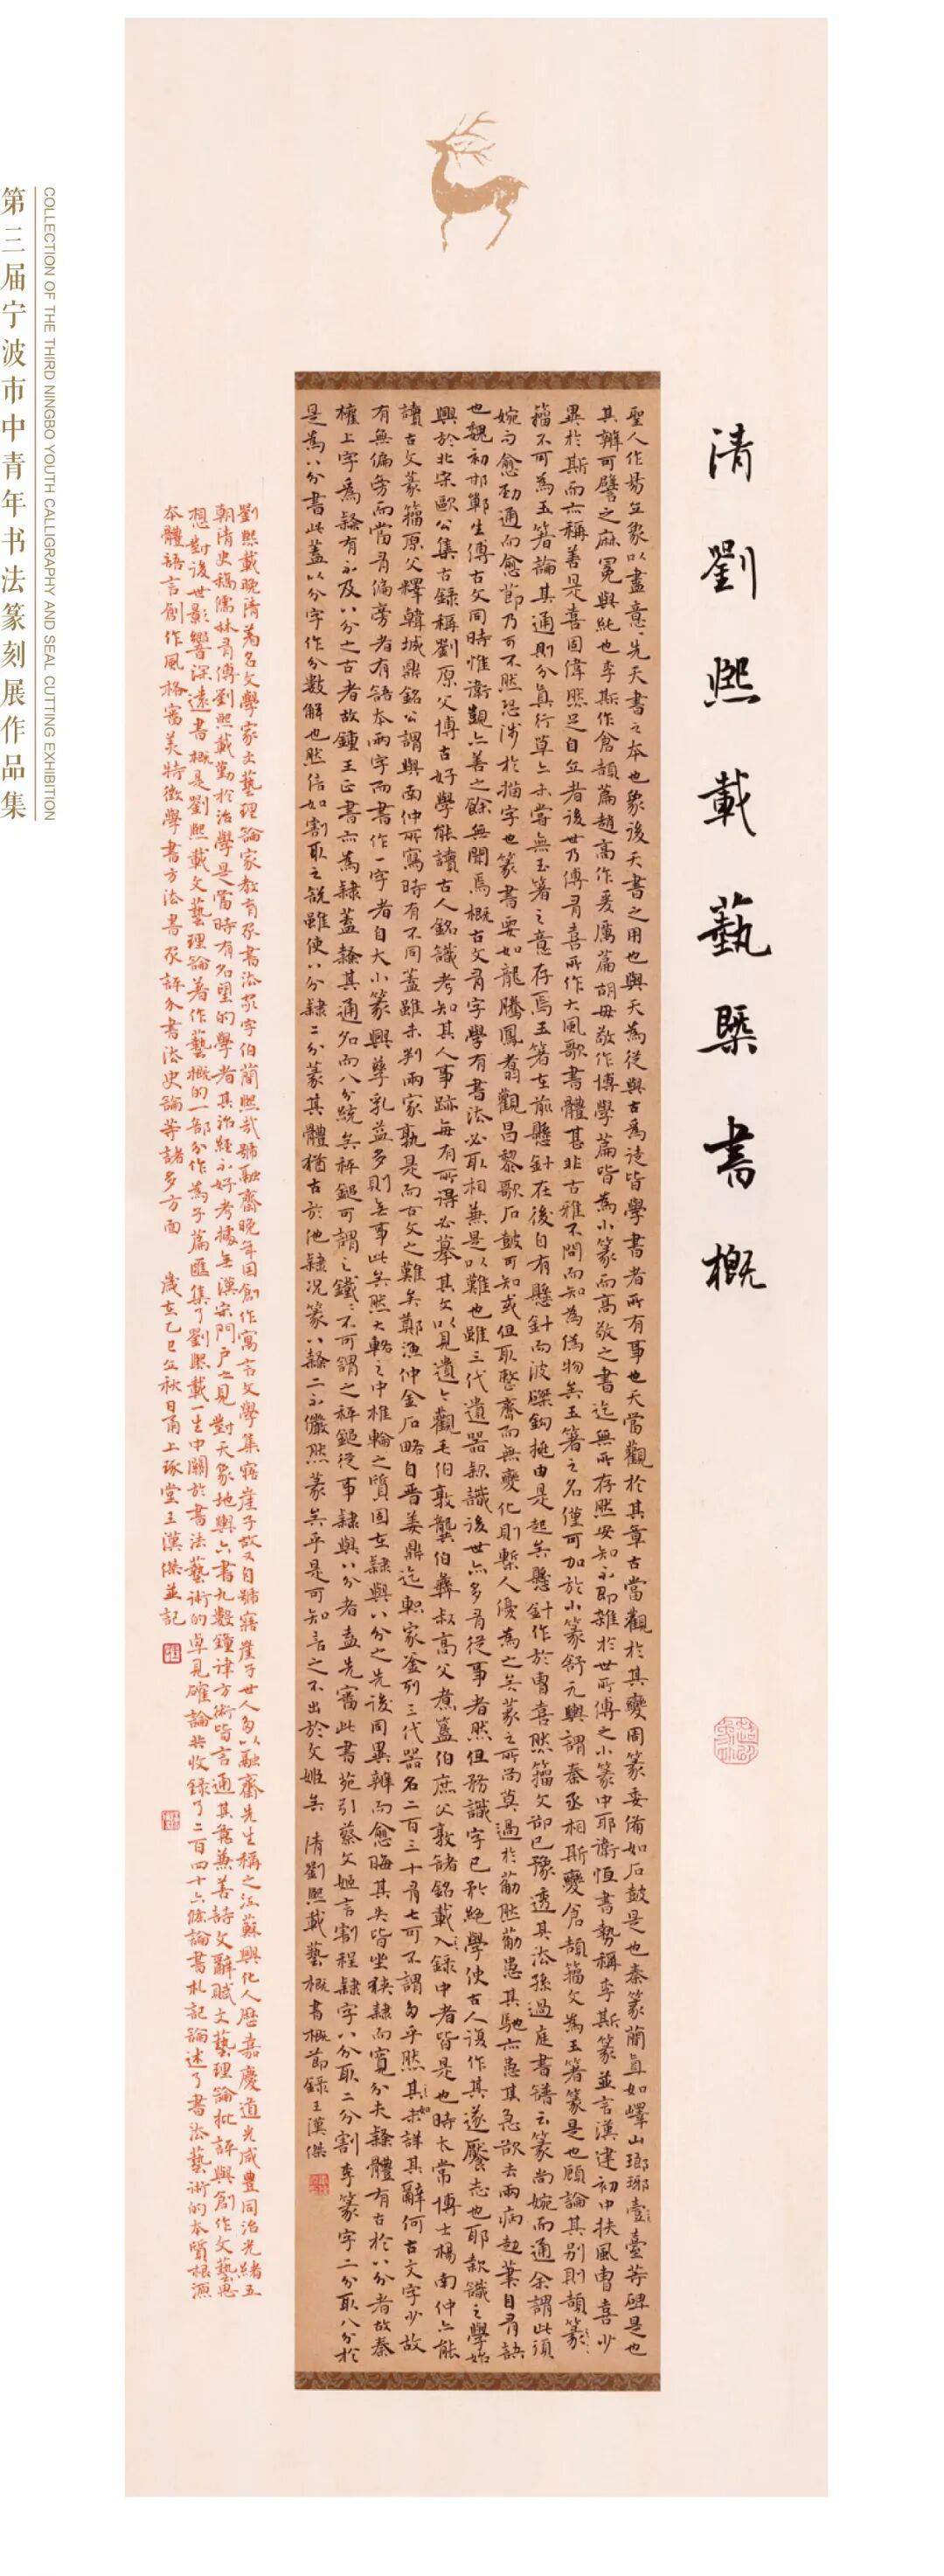 清劉熙載藝槩書概
聖人作易立象以盡意意先天書之本也象後天書之用也與天為徒與古為徒皆學書者所有事也天當觀於其章古當觀於其變周篆委備如石鼓是也秦篆簡直如嶧山瑯琊臺等碑是也
其辨可譬之麻冕與純也李斯作倉頡篇趙高作爰歷篇胡毋敬作博學篇皆為小篆而高敬之書迄無所存然安知不即雜於世所傳之小篆中耶衛恒書勢稱李斯篆並言漢建初中扶風曹喜少
異於斯而亦稱善是喜固偉然足自立者後世乃傳有喜所作大風歌書體甚非古雅不問而知為偽物矣玉箸之名僅可加於小篆舒元輿謂秦丞相斯變倉頡籀文為玉箸篆是也顧論其別則頡篆
籀不可為玉箸論其通則分真行草亦未嘗無玉箸之意存焉玉箸在前懸針在後自有懸針而波磔鉤挑由是起矣懸針作於曹喜然籀文却已豫透其法孫過庭書譜云篆尚婉而通余謂此須
婉而愈勁通而愈節乃可不然恐涉於描字也篆書要如龍騰鳳翥觀昌黎歌石鼓可知或但取整齊而無變化則槧人優為之矣篆之所尚莫過於筋然筋患其馳亦患其急欲去兩病趯筆自有訣
也魏初邯鄲生傳古文同時惟衛覬亦善之餘無聞焉概古文有字學有書法必取相兼是以難也雖三代遺器款識後世亦多有從事者然但務識字已矜絕學使古人復作其遂饜志也耶款識之學始
興於北宋歐公集古錄稱劉原父博古好學能讀古人銘識考知其人事跡每有所得必摹其文以見遺今觀毛伯敦龔伯彝叔高父煮簋伯庶父敦諸銘載入錄中者皆是也時太常博士楊南仲亦能
讀古文篆籀原父釋韓城鼎銘公謂與南仲所寫時有不同蓋雖未判兩家孰是而古文之難矣鄭漁仲金石略自晉姜鼎迄軹家釜列三代器名二百三十有七可不謂多乎然其未詳其辭何古文字少故
有無偏旁而當有偏旁者有語本兩字而書作一字者自大小篆興孳乳益多則無事此矣然大輅之中椎輪之質固在隸與八分之先後同異辨而愈晦其失皆坐狹隸而寬分夫隸體有古於八分者故秦
權上字為隸有不及八分之古者故鍾王正書亦為隸蓋隸其通名而八分統矣秤鎚可謂之鐵鐵不可謂之秤鎚從事隸與八分者盍先審此書苑引蔡文姬言割程隸字八分取二分割李篆字二分取八分於
是為八分書此蓋以分字作分數解也然信如割取之說雖使八分隸二分篆其體猶古於他隸況篆八隸二不儼然篆矣乎是可知言之不出於文姬矣 清劉熙載藝概書概節錄王漢傑
劉熙載晚清著名文學家文藝理論家教育家書法家字伯簡熙哉號融齋晚年因創作寓言文學集寤崖子故又自號寤崖子世人多以融齋先生稱之江蘇興化人歷嘉慶道光咸豐同治光緒五
朝清史稿儒林有傳劉熙載勤於治學是當時有名望的學者其治經不好考據無漢宋門戶之見對天象地輿六書九數鐘律方術皆言通其意兼善詩文辭賦文藝理論批評與創作文藝思
想對後世影響深遠書概是劉熙載文藝理論著作藝概的一部分作為子篇匯集了劉熙載一生中關於書法藝術的卓見確論共收錄了二百四十六條論書札記論述了書法藝術的本質根源
本體語言創作風格審美特徵學書方法書家評介書法史論等諸多方面 歲在乙巳立秋日甬上琢堂王漢傑並記
第三届宁波市中青年书法篆刻展作品集
COLLECTION OF THE THIRD NINGBO YOUTH CALLIGRAPHY AND SEAL CUTTING EXHIBITION